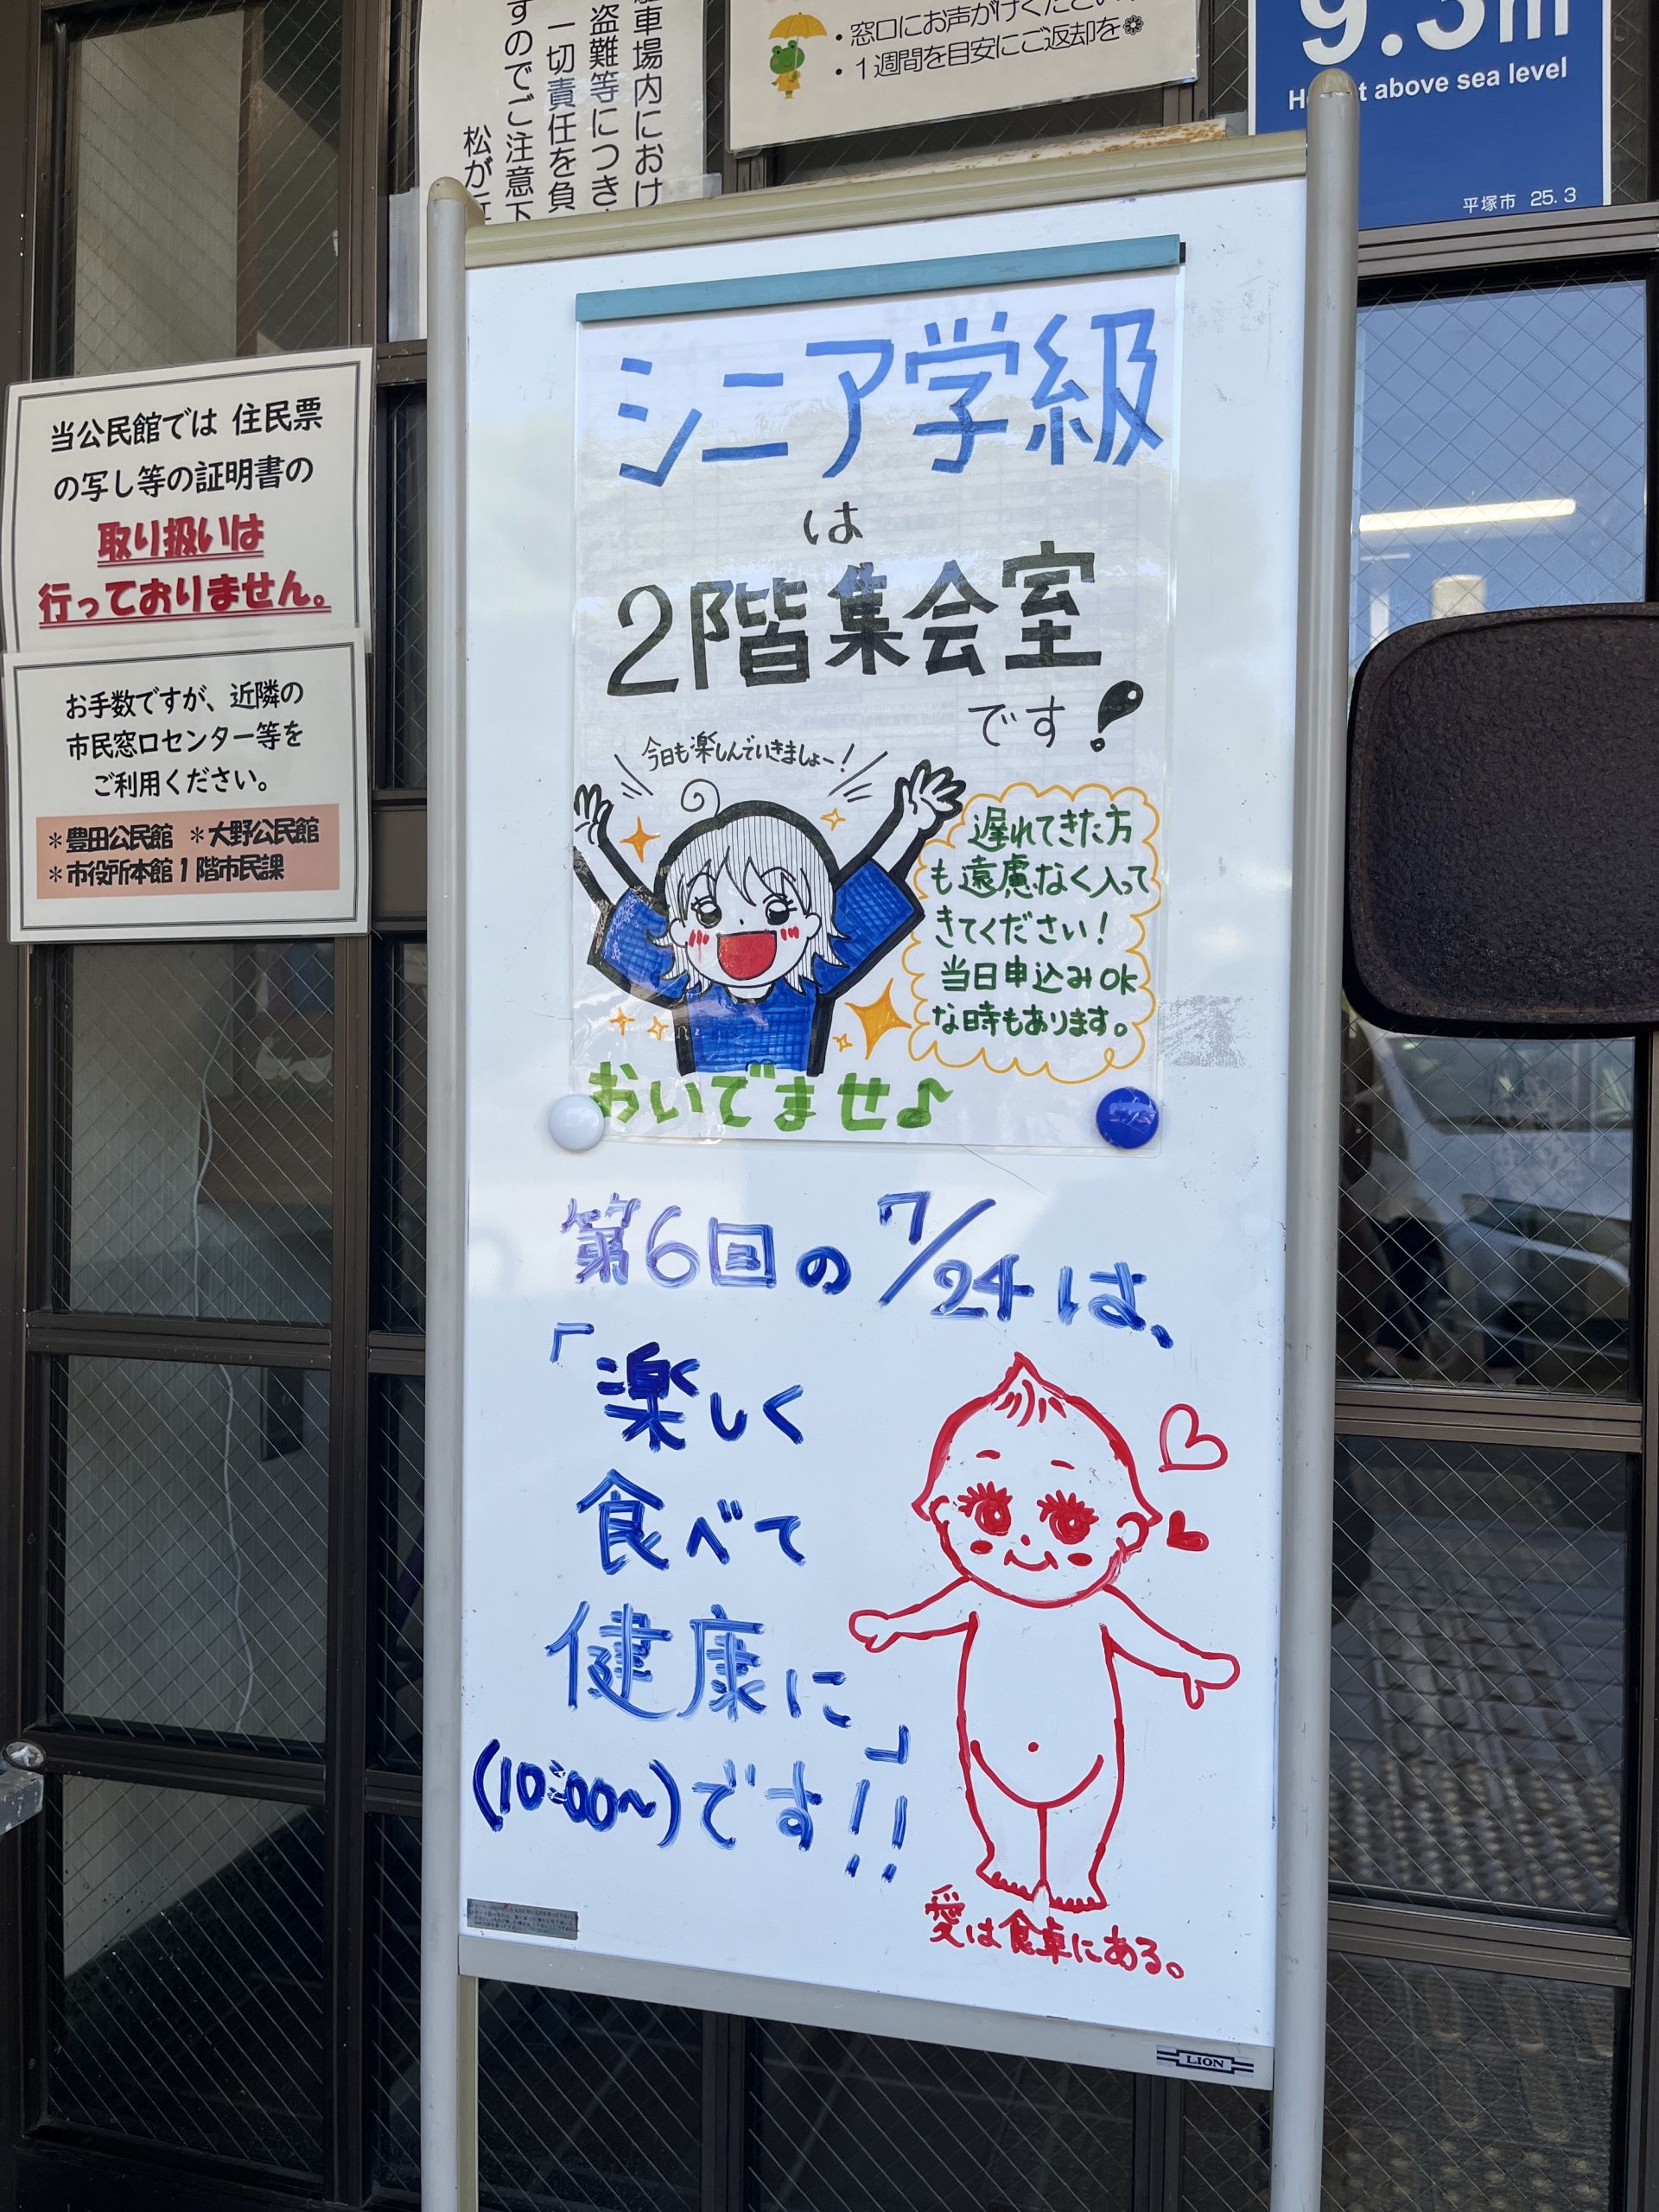 車場内におけ
盗難等につき
一切責任を負
すのでご注意下
松が
・窓口にお声がけください
・1週間を目安にご返却を
9.3m
above sea level
平塚市 25.3
当公民館では 住民票
の写し等の証明書の
取り扱いは
行っておりません。
お手数ですが、近隣の
市民窓口センター等を
ご利用ください。
＊豊田公民館 ＊大野公民館
＊市役所本館1階市民課
シニア学級
は
2階集会室
です!
今日も楽しんでいきましょー!
遅れてきた方
も遠慮なく入って
きてください!
当日申込みOK
な時もあります。
おいでませ♪
第6回の7/24は、
「楽しく
食べて
健康に」
(10:00~)です!!
愛は食卓にある。
LION